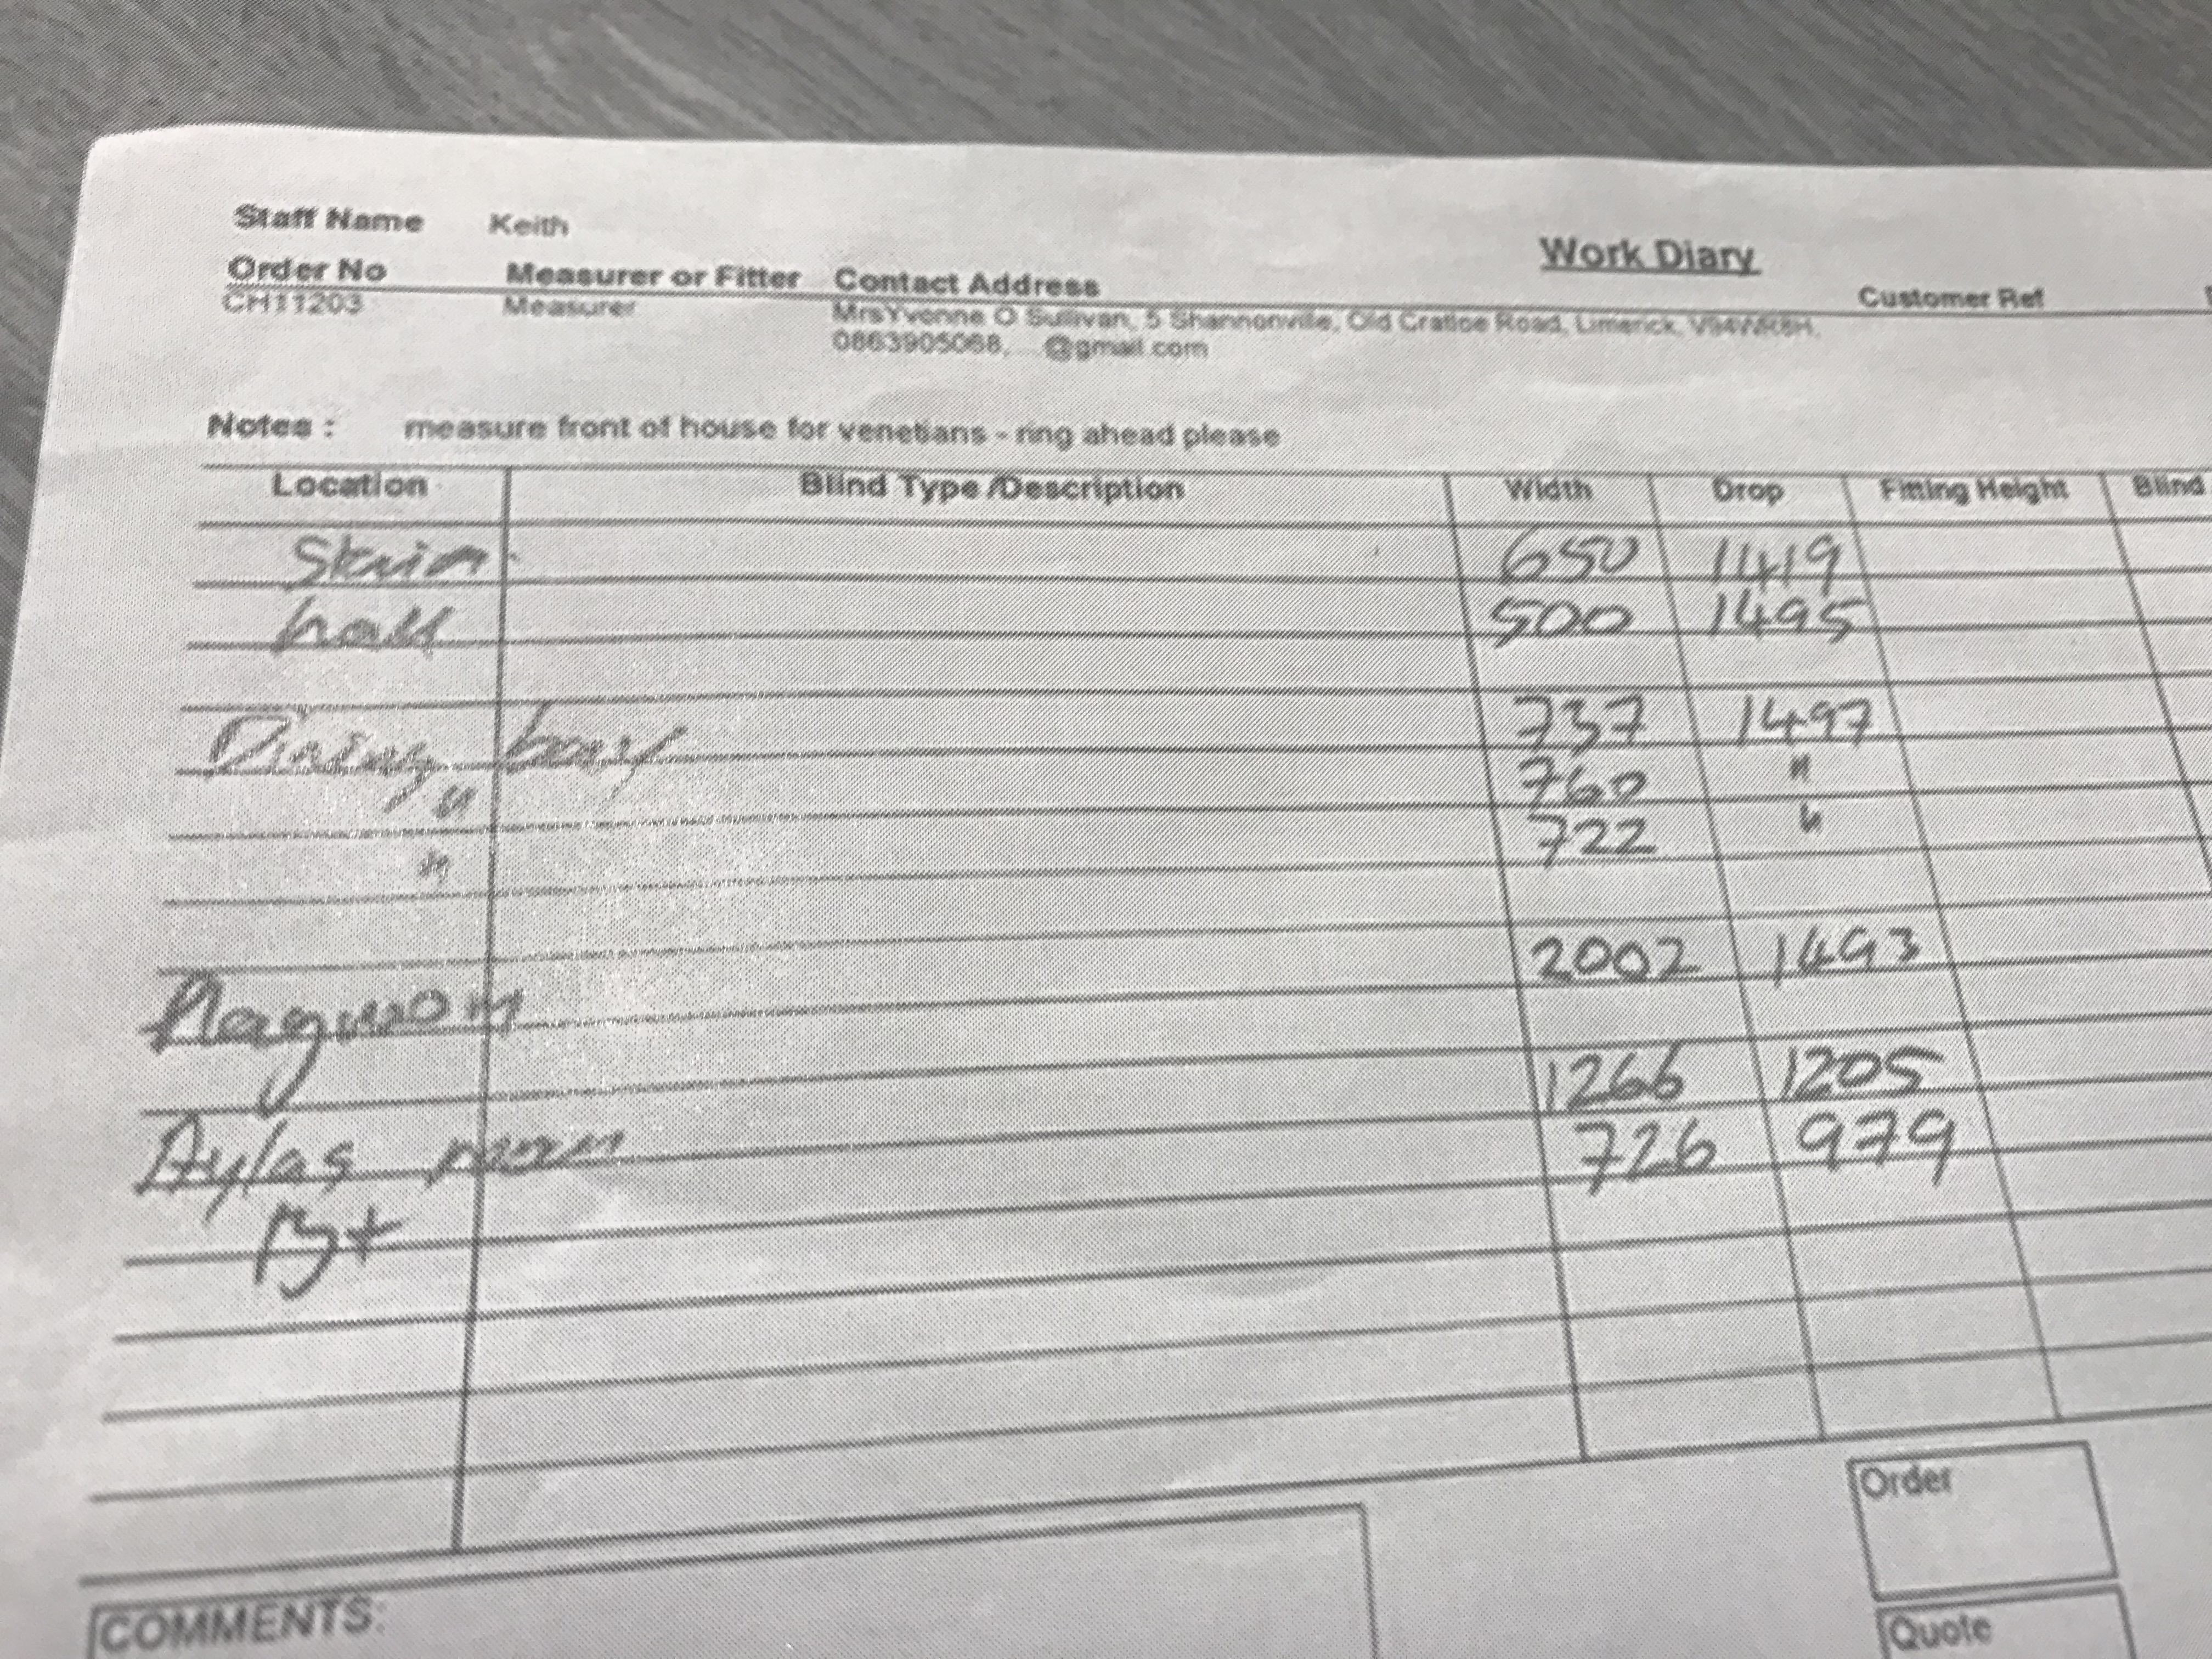 Staff Name Keith
Work Diary
Order No Measurer or Fitter Contact Address Customer Ref
CH11203 Measurer MrsYvonne O Sullivan, 5 Shannonville, Old Cratloe Road, Limerick, V94WR8H,
0863905068, @gmail.com
Notes : measure front of house for venetians - ring ahead please
Location Blind Type /Description Width Drop Fitting Height Blind
650 1419
hall 500 1495
Dining bay 737 1497
" 760 "
" 722 "
2002 1493
1266 1205
room 726 979
COMMENTS:
Order
Quote